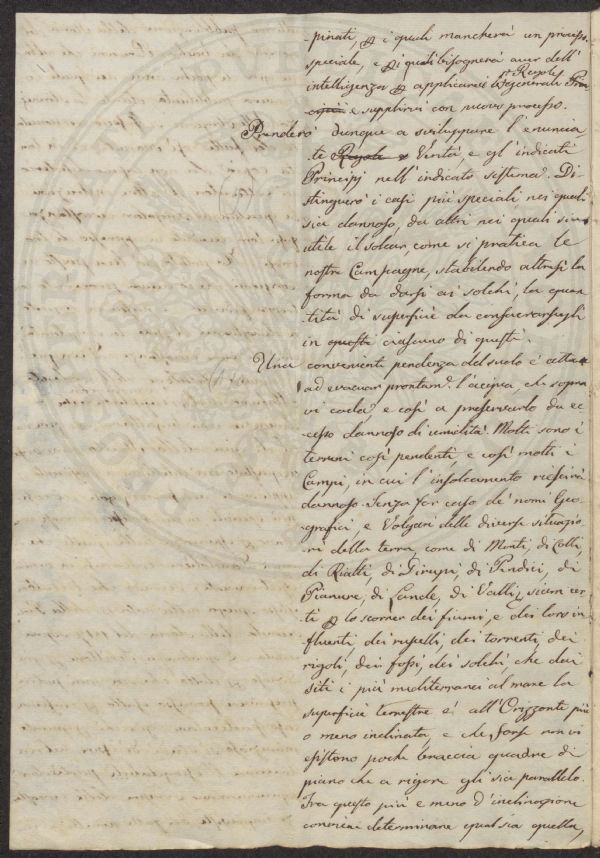 -pinati, e i quali mancherà un processo
speciale, e di quali bisognerà aver dell'
intelligenza applicarvi Regole generali, Prin
cipii e supplirvi con nuovo processo.
Prenderò dunque a sviluppare l'enuncia
te Regole e Verità, e gl'indicati
Principj nell'indicato sistema. Di
stinguerò i casi più speciali nei quali
sia dannoso, da altri nei quali sia
utile il solcar, come si pratica le
nostre Campagne, stabilendo altresì la
forma da darsi ai solchi, la quan
-tità di superficie da consacrarsegli
in questi ciascuno di questi.
Una conveniente pendenza del suolo è atta
ad evacuar prontam.e l'acqua, che sopra
vi cada, e così a preservarlo da ec
cesso dannoso di umidità. Molti sono i
terreni così pendenti, e così molti i
Campi, in cui l'insolcamento riescirà
dannoso. Senza far caso de' nomi Geo
grafici, e Volgari delle diverse situazio
ni della terra, come di Monti, di Colli,
di Rialti, di Dirupi, di Pendici, di
Pianure, di Lande, di Valli, siam cer
ti lo scorrer dei fiumi, e dei loro in
fluenti, dei ruscelli, dei torrenti, dei
rigoli, dei fossi, dei solchi, che dai
siti i più mediterranei al mare la
superficie terrestre è all'Orizzonte più
o meno inclinata, e che forse non vi
esistono poche braccia quadre di
piano che a rigore gli sia parallelo.
Tra questo più e meno d'inclinazione
convien determinare qual sia quella,